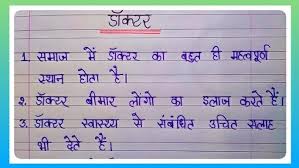 डॉक्टर
1. समाज में डॉक्टर का बहुत ही महत्वपूर्ण
स्थान होता है।
2. डॉक्टर बीमार लोंगो का इलाज करते हैं।
3. डॉक्टर स्वास्थ्य से संबंधित उचित सलाह
भी देते हैं।